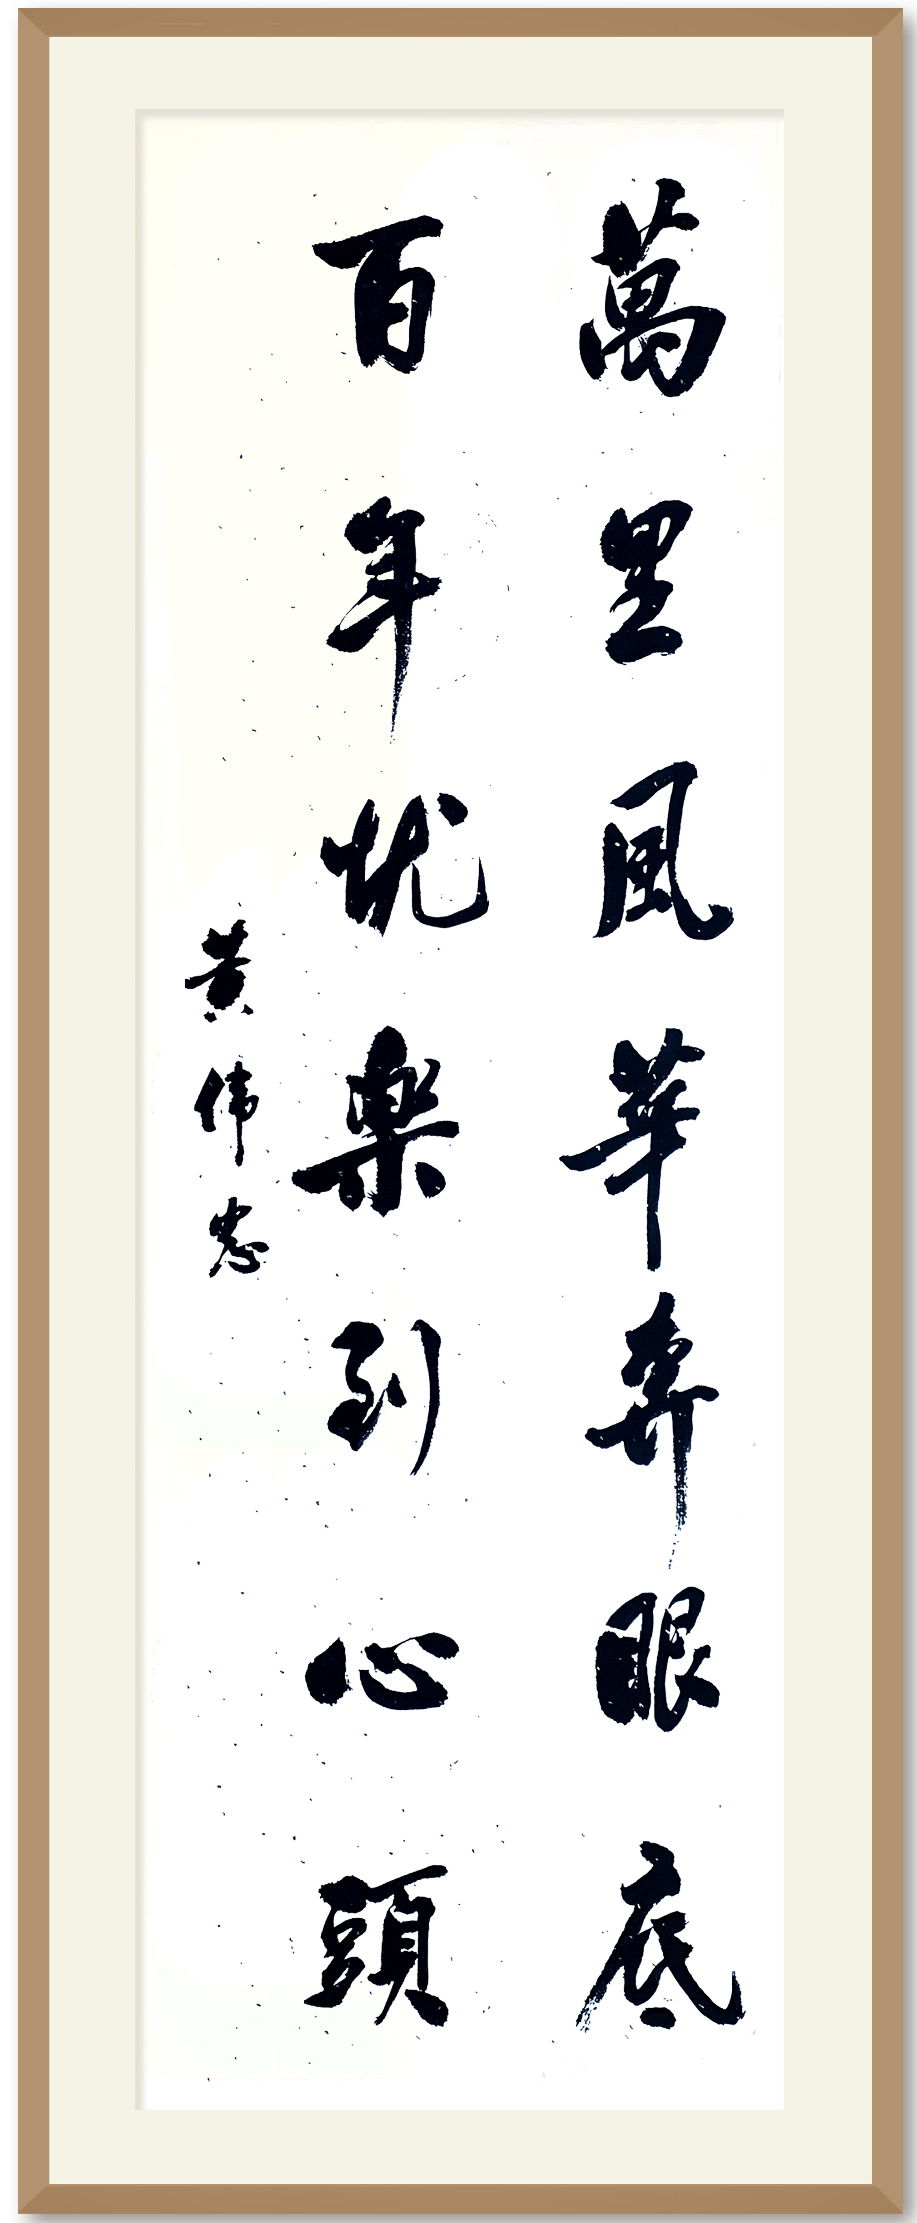 萬里風華奔眼底
百年忧楽到心頭
黄伟忠